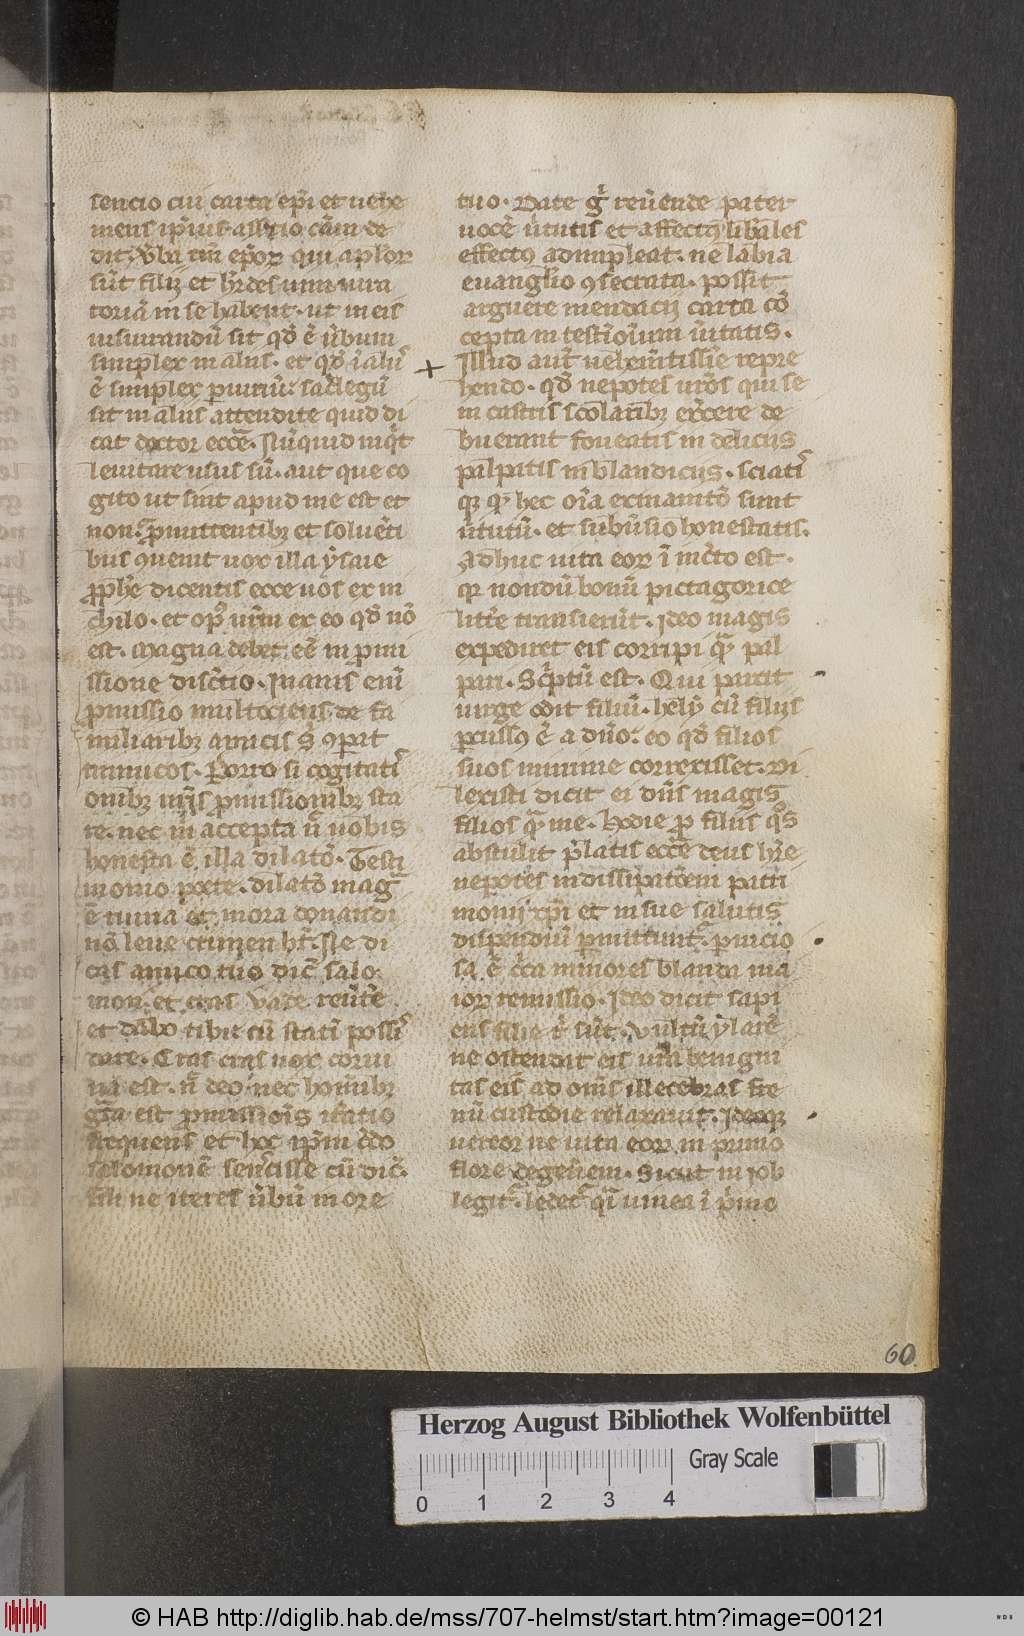 sencio cui carta ep̄i et uehe
mens ip̄ius assertio cām de
dit. v̄ba tn̄ ep̄or qui ap̄lor
sūt filij et h̄rdes
toriā in se habent. ut in eis
iusiurandū sit qd̄ ē v̄bum
simplex in alijs. et qd̄ ī alijs
ē simplex
sit in alijs attendite quid di
cat doctor ecc̄e. Nūquid inq̄t
leuitate usus sū. aut que co
gito ut sint apud me est et
non. p̄mittentibȝ et soluēti
bus ꝯuenit uox illa ysaie
ꝓphē dicentis ecce uos ex ni
chilo. et opꝰ ur̄m ex eo qd̄ nō
est. Magna debet eē in ꝓmi
ssione discr̄tio. Inanis enī
ꝓmissio multociens de fa
miliaribȝ amicis ꝯparat
inimicos. Porro si cogitatis
om̄ibȝ ur̄is ꝓmissionibȝ sta
re. nec m̄ accepta nͥ uobis
honesta ē illa dilatō. Testi
monio poete. dilatō magͣ
ē mina et mora donandi
nō leue crimen h̄t. Ne di
cas amico tuo dic̄ salo
mon. et cras vade reūte
et dabo tibi cū statī possis
dare. Cras cras uox corui
na est. nͥ deo nec hom̄ibȝ
gͣta est ꝓmissiōis iterūtio
frequens et hoc ip̄m c̄do
salomonē sensisse cū dic̄.
fili ne iteres v̄bū in ore
tuo. Date gͥ reūende pater
uocē ūtutis et affectꝰ lib̄ales
effectꝰ adimpleat. ne labia
euangl̄io ꝯsecrata. possit
arguere mendacij carta cō
cepta in testīonium ūitatis.
Illud aut̄ uehem̄tissīe repre
hendo. qd̄ nepotes ur̄os qui se
in castris scolaribȝ ex̄cere de
buerant fouetis in delicijs
palpatis in blandicijs. Sciatis
qȝ qͥ hec oīa exinanitō sunt
ūtutū. et subūsio honestatis.
Adhuc uita eor ī inc̄to est.
qr nondū bonū pictagorice
litt̄e transierūt. Ideo magis
expediret eis corripi qͣ pal
pari. Sc̄ptū est. Qui parcit
uirge odit filiū. hely cū filijs
ꝑcussꝰ ē a dn̄o. eo qd̄ filios
suos minime correxisset. Di
lexisti dicit ei dn̄s magis
filios qͣ me. Hodie ꝓ filijs qͦs
abstulit p̄latis ecc̄e deus h̄re
nepotes in dissipatōem patri
monij xp̄i et in sue salutis
dispendiū ꝑmittuntͬ. ꝑnicio
sa ē c̄ca minores blanda ma
ior remissio. Ideo dicit sapi
ens filie tͥ sūt. vultū ylarē
ne ostendas eis ur̄a benigni
tas eis ad om̄s illecebras fre
nū custodie relaxauit. Ideoqȝ
uereor ne uita eor in primo
flore degenēt. Sicut in iob
legitͬ. ledetͬ qͣi uinea ī p̄mo
60
Herzog August Bibliothek Wolfenbüttel
Gray Scale
0 1 2 3 4
© HAB http://diglib.hab.de/mss/707-helmst/start.htm?image=00121